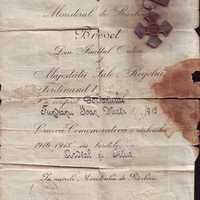 Ministerul de Răsboiu
Brevet
Din Înaltul Ordin
al
Majestății Sale Regelui
Ferdinand I
S'a conferit
Ioan 1915
Crucea Comemorativă a răsboiului
1916-1918 cu baretele
Ardeal și
În numele Ministrului de Răsboiu